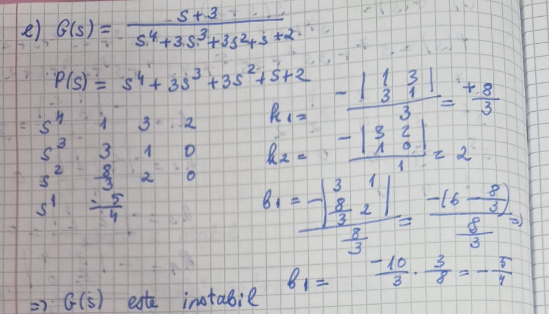 e) G(s) = s+3 / s⁴+3s³+3s²+s+2
P(s) = s⁴+3s³+3s²+s+2
s⁴ 1 3 2
s³ 3 1 0
s² 8/3 2 0
s¹ -5/4
k1 = -|1 3; 3 1| / 3 = +8/3
k2 = -|3 2; 1 0| / 1 = 2
b1 = -|3 1; 8/3 2| / 8/3 = -(6 - 8/3) / 8/3 =>
b1 = -10/3 · 3/8 = -5/4
=> G(s) este instabil